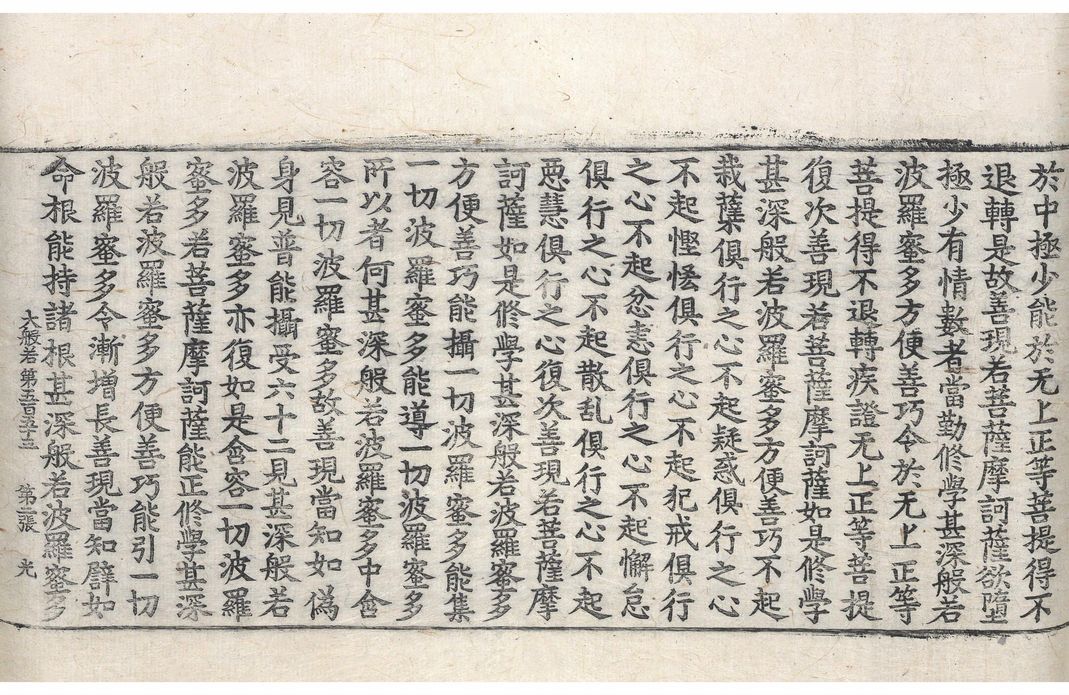 於中極少能於无上正等菩提得不
退轉是故善現若菩薩摩訶薩欲墮
極少有情數者當勤修學甚深般若
波羅蜜多方便善巧令於无上正等
菩提得不退轉疾證无上正等菩提
復次善現若菩薩摩訶薩如是修學
甚深般若波羅蜜多方便善巧不起
栽蘖俱行之心不起疑惑俱行之心
不起慳悋俱行之心不起犯戒俱行
之心不起忿恚俱行之心不起懈怠
俱行之心不起散乱俱行之心不起
惡慧俱行之心復次善現若菩薩摩
訶薩如是修學甚深般若波羅蜜多
方便善巧能攝一切波羅蜜多能集
一切波羅蜜多能導一切波羅蜜多
所以者何甚深般若波羅蜜多中含
容一切波羅蜜多故善現當知如偽
身見普能攝受六十二見甚深般若
波羅蜜多亦復如是含容一切波羅
蜜多若菩薩摩訶薩能正修學甚深
般若波羅蜜多方便善巧能引一切
波羅蜜多令漸增長善現當知譬如
命根能持諸根甚深般若波羅蜜多
大般若第五百五十三 第二張 光